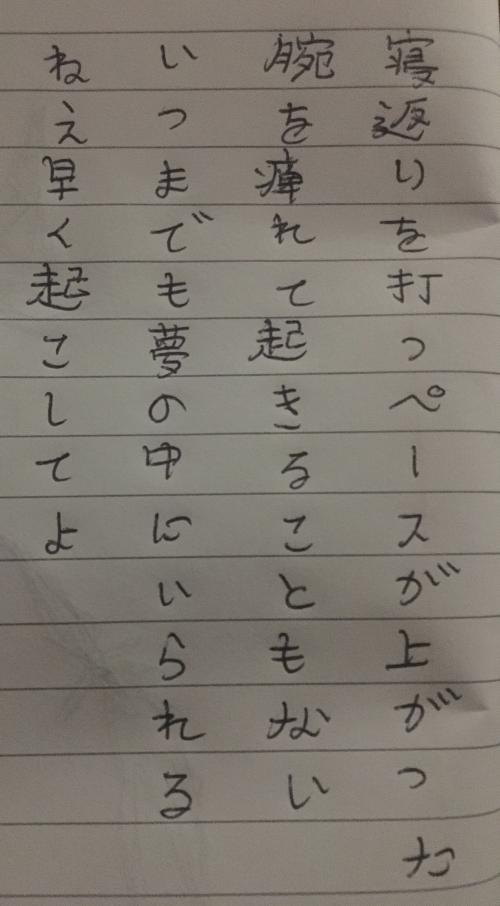 寝返りを打つペースが上がった
腕を痺れて起きることもない
いつまでも夢の中にいられる
ねえ早く起こしてよ